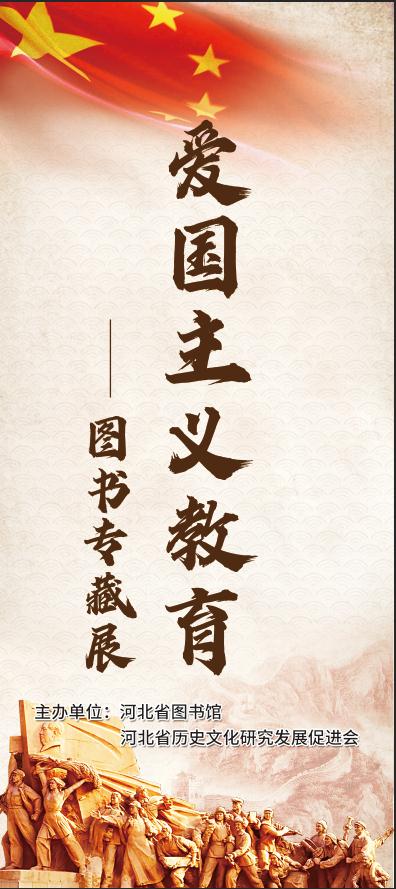 爱国主义教育
——图书专藏展
主办单位：河北省图书馆
河北省历史文化研究发展促进会